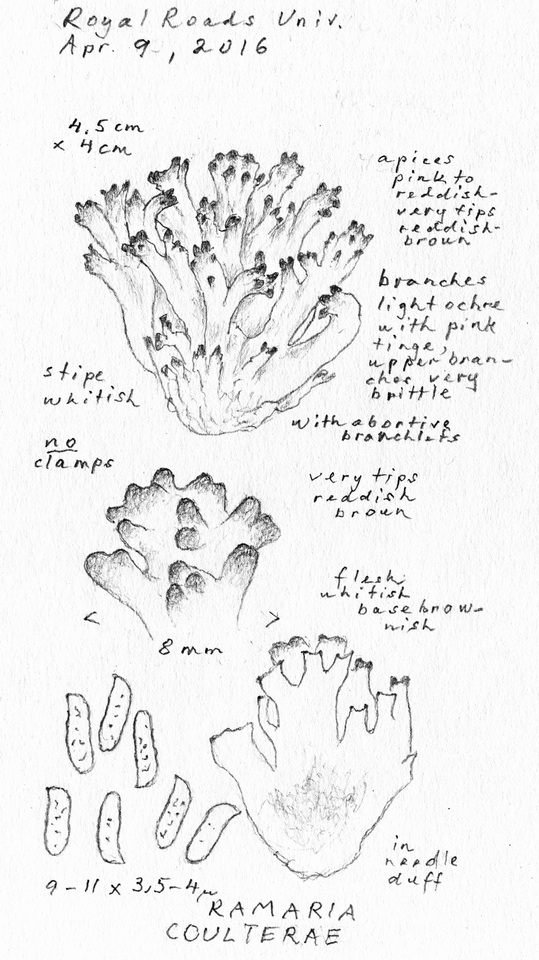 Royal Roads Univ.
Apr. 9, 2016
4,5 cm
x 4 cm
apices
pink to
reddish-
very tips
reddish-
brown
branches
light ochre
with pink
tinge,
upper bran-
ches very
brittle
stipe
whitish
with abortive
branchlets
no
clamps
very tips
reddish
brown
flesh
whitish
base brow-
nish
< >
8 mm
in
needle
duff
9-11 x 3,5-4µ
RAMARIA
COULTERAE